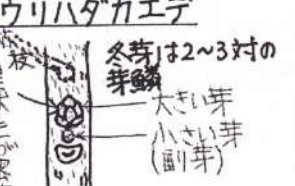 ウリハダカエデ
冬芽は2〜3対の
芽鱗
枝
大きい芽
小さい芽
(副芽)